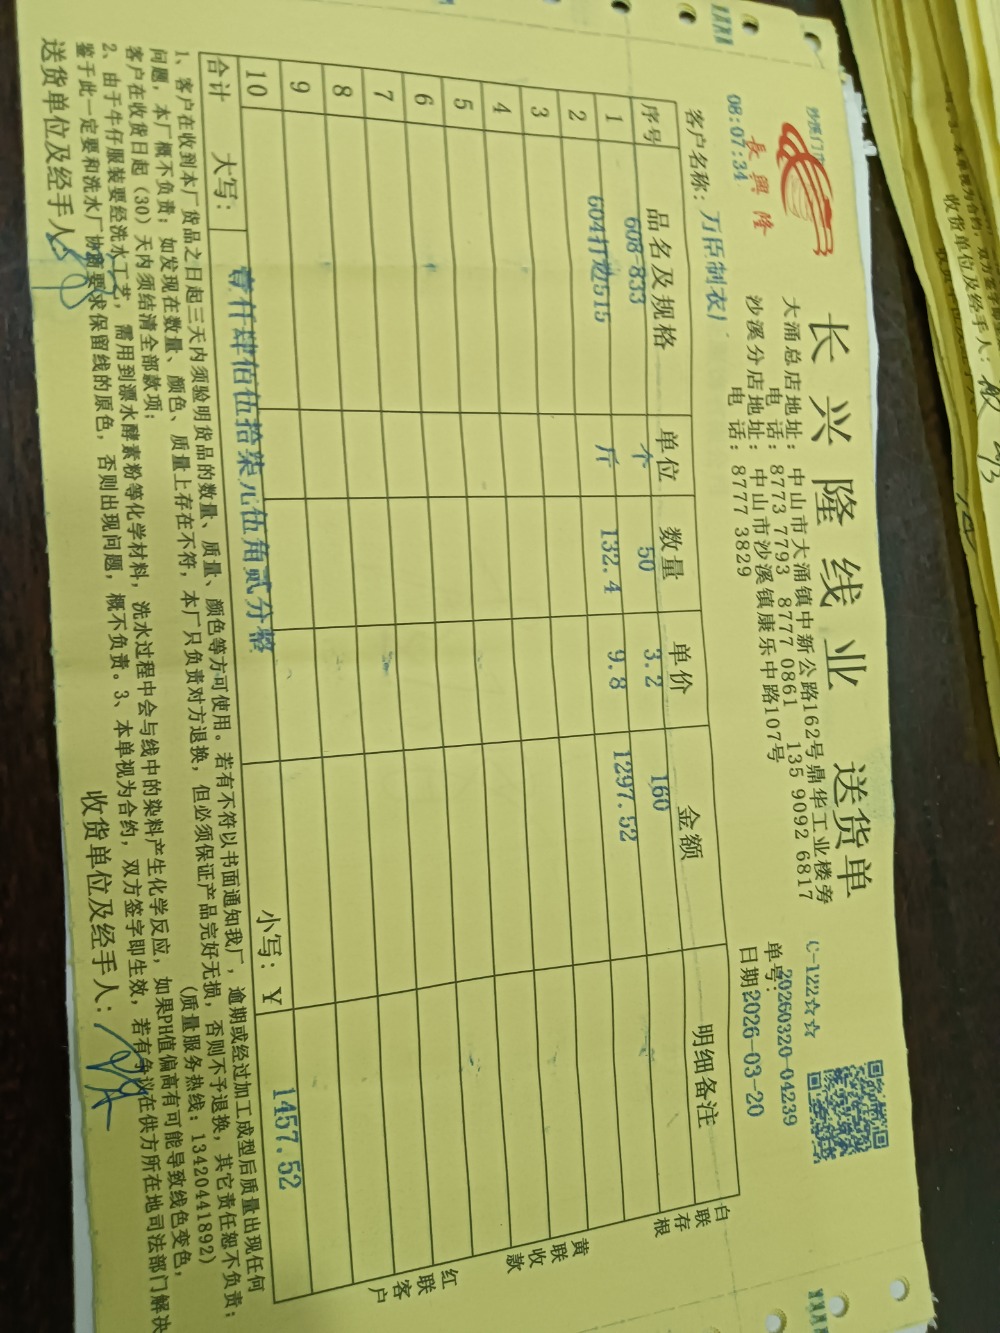 長興隆
08:07:34
长兴隆线业 送货单
大涌总店地址:中山市大涌镇中新公路162号鼎华工业楼旁
电话:8773 7793 8777 0861 135 9092 6817
沙溪分店地址:中山市沙溪镇康乐中路107号
电话:8777 3829
C-122☆☆
单号:20260320-04239
日期2026-03-20
客户名称:万臣制衣厂
序号 品名及规格 单位 数量 单价 金额 明细备注
1 608-833 个 50 3.2 160
2 604打边515 斤 132.4 9.8 1297.52
3
4
5
6
7
8
9
10
合计 大写:壹仟肆佰伍拾柒元伍角贰分整 小写:¥ 1457.52
白联存根
黄联收款
红联客户
1、客户在收到本厂货品之日起三天内须验明货品的数量、质量、颜色等方可使用。若有不符以书面通知我厂,逾期或经过加工成型后质量出现任何
问题,本厂概不负责;如发现在数量、颜色、质量上存在不符,本厂只负责对方退换,但必须保证产品完好无损,否则不予退换,其它责任恕不负责;
客户在收货日起(30)天内须结清全部款项; (质量服务热线:13420441892)
2、由于牛仔服装要经洗水工艺,需用到漂水酵素粉等化学材料,洗水过程中会与线中的染料产生化学反应,如果PH值偏高有可能导致线色变色,
鉴于此一定要和洗水厂协商要求保留线的原色,否则出现问题,概不负责。3、本单视为合约,双方签字即生效,若有争议在供方所在地司法部门解决
送货单位及经手人:
收货单位及经手人:
收货单位及经手人: